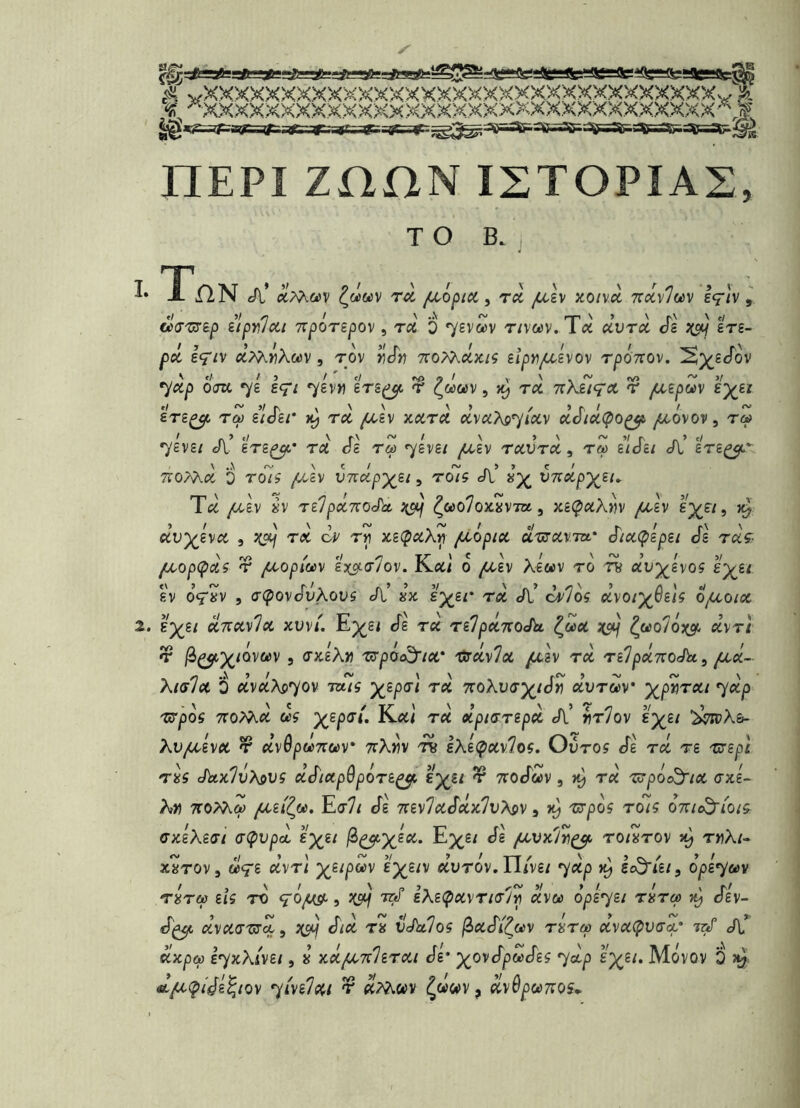 ΠΕΡΙ ΖΩΩΝ ΙΣΤΟΡΙΑΣ,
ΤΟ Β.
I. ΤΩΝ δ᾽ ἄλλων ζώων τὰ μόρια, τὰ μὲν κοινὰ πάντων ἐστὶν,
ὥσπερ εἴρηται πρότερον, τὰ δὲ γενῶν τινων. Τὰ αὐτὰ δὲ καὶ ἕτε-
ρά ἐστιν ἀλλήλων, τὸν ἤδη πολλάκις εἰρημένον τρόπον. Σχεδὸν
γὰρ ὅσα γέ ἐστι γένη ἕτερα τῶν ζώων, καὶ τὰ πλεῖστα τῶν μερῶν ἔχει
ἕτερα τῷ εἴδει· καὶ τὰ μὲν κατὰ ἀναλογίαν ἀδιάφορα μόνον, τῷ
γένει δ᾽ ἕτερα· τὰ δὲ τῷ γένει μὲν ταὐτὰ, τῷ εἴδει δ᾽ ἕτερα·
πολλὰ δὲ τοῖς μὲν ὑπάρχει, τοῖς δ᾽ οὐχ ὑπάρχει.
Τὰ μὲν οὖν τετράποδα καὶ ζωοτοκοῦντα, κεφαλὴν μὲν ἔχει, καὶ
αὐχένα, καὶ τὰ ἐν τῇ κεφαλῇ μόρια ἅπαντα· διαφέρει δὲ τὰς
μορφὰς τῶν μορίων ἕκαστον. Καὶ ὁ μὲν λέων τὸ τοῦ αὐχένος ἔχει
ἓν ὀστοῦν, σφονδύλους δ᾽ οὐκ ἔχει· τὰ δ᾽ ἐντὸς ἀνοιχθεὶς ὅμοια
2. ἔχει ἅπαντα κυνί. Ἔχει δὲ τὰ τετράποδα ζῶα καὶ ζωοτόκα ἀντὶ
τῶν βραχιόνων, σκέλη πρόσθια· πάντα μὲν τὰ τετράποδα, μά-
λιστα δὲ ἀνάλογον ταῖς χερσὶ τὰ πολυσχιδῆ αὐτῶν· χρῆται γὰρ
πρὸς πολλὰ ὡς χερσί. Καὶ τὰ ἀριστερὰ δ᾽ ἧττον ἔχει ἀπολε-
λυμένα τῶν ἀνθρώπων· πλὴν τοῦ ἐλέφαντος. Οὗτος δὲ τά τε περὶ
τοὺς δακτύλους ἀδιαρθρότερα ἔχει τῶν ποδῶν, καὶ τὰ πρόσθια σκέ-
λη πολλῷ μείζω. Ἔστι δὲ πενταδάκτυλον, καὶ πρὸς τοῖς ὀπισθίοις
σκέλεσι σφυρὰ ἔχει βραχέα. Ἔχει δὲ μυκτῆρα τοιοῦτον καὶ τηλι-
κοῦτον, ὥστε ἀντὶ χειρῶν ἔχειν αὐτόν. Πίνει γὰρ καὶ ἐσθίει, ὀρέγων
τούτῳ εἰς τὸ στόμα, καὶ τῷ ἐλεφαντιστῇ ἄνω ὀρέγει τούτῳ καὶ δέν-
δρα ἀνασπᾷ, καὶ διὰ τοῦ ὕδατος βαδίζων τούτῳ ἀναφυσᾷ· τῷ δ᾽
ἄκρῳ ἐγκλίνει, οὐ κάμπτεται δέ· χονδρῶδες γὰρ ἔχει. Μόνον δὲ καὶ
ἀμφιδέξιον γίνεται τῶν ἄλλων ζώων, ἄνθρωπος.